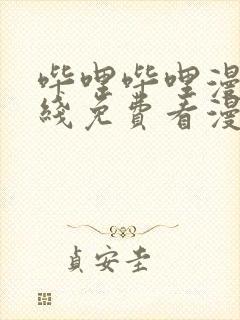 哔哩哔哩漫
线免费看漫
贞安圭